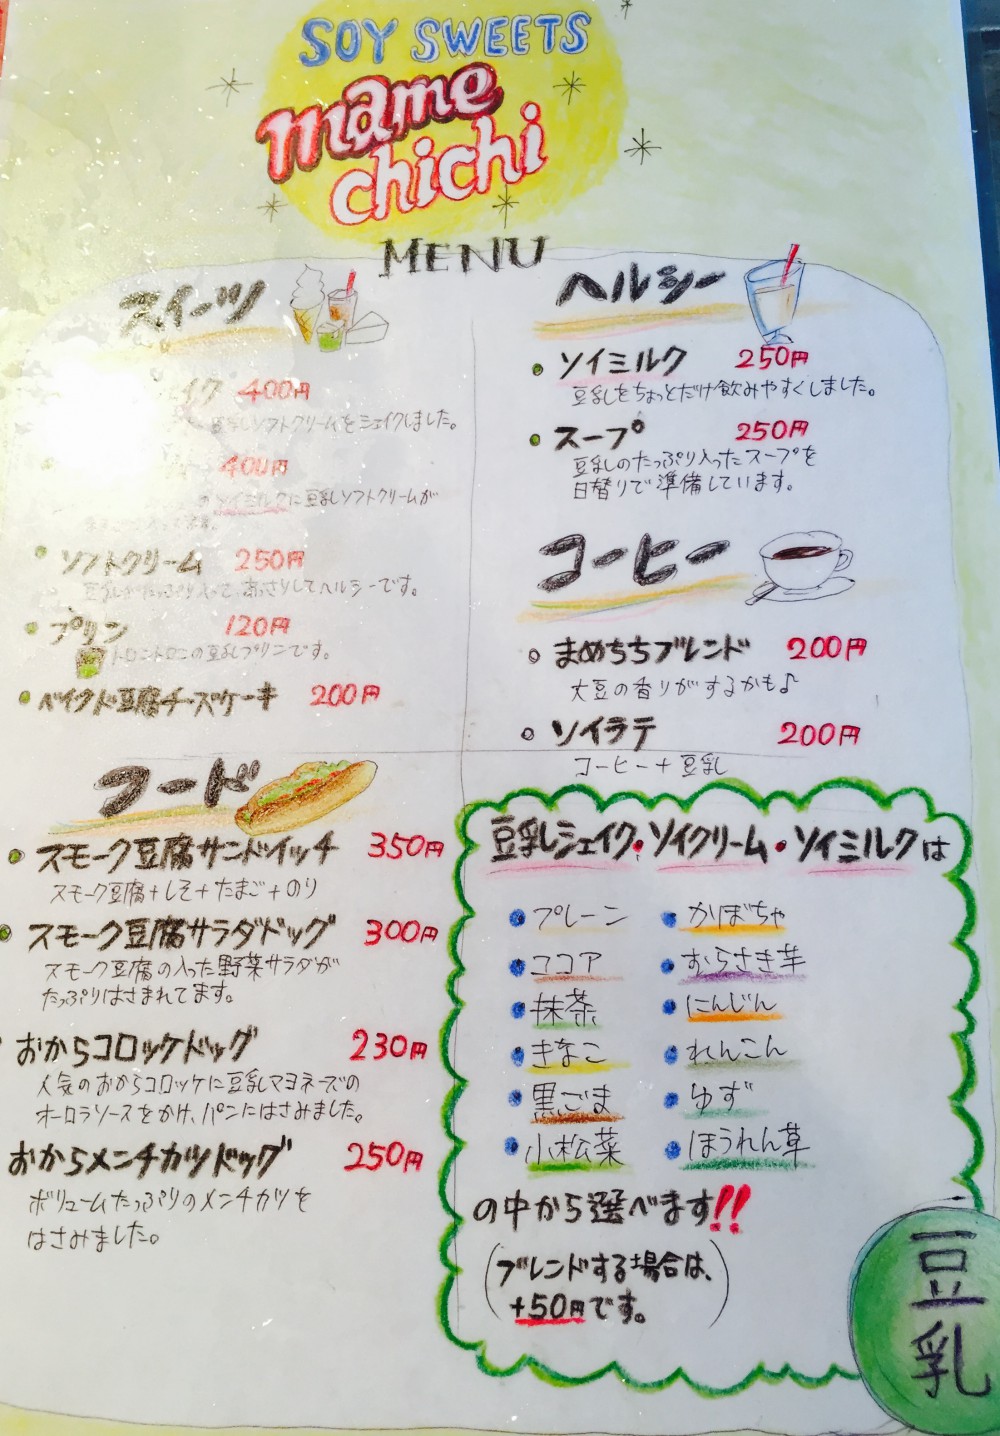 SOY SWEETS
mame
chichi
MENU
スイーツ
イク 400円
豆乳ソフトクリームをシェイクしました。
400円
のソイミルクに豆乳ソフトクリームが
ソフトクリーム 250円
豆乳がたっぷり入って、高さりしてヘルシーです。
プリン 120円
トロントロンの豆乳プリンです。
ベイクド豆腐チーズケーキ 200円
フード
スモーク豆腐サンドイッチ 350円
スモーク豆腐+しそ+たまご+のり
スモーク豆腐サラダドッグ 300円
スモーク豆腐の入った野菜サラダが
たっぷりはさまれてます。
おからコロッケドッグ 230円
人気のおからコロッケに豆乳マヨネーズの
オーロラソースをかけ、パンにはさみました。
おからメンチカツドッグ 250円
ボリュームたっぷりのメンチカツを
はさみました。
ヘルシー
ソイミルク 250円
豆乳をちょっとだけ飲みやすくしました。
スープ 250円
豆乳のたっぷり入ったスープを
日替りで準備しています。
コーヒー
まめちちブレンド 200円
大豆の香りがするかも♪
ソイラテ 200円
コーヒー+豆乳
豆乳シェイク・ソイクリーム・ソイミルクは
プレーン
ココア
抹茶
きなこ
黒ごま
小松菜
かぼちゃ
むらさき芋
にんじん
れんこん
ゆず
ほうれん草
の中から選べます!!
(ブレンドする場合は、
+50円です。)
豆乳